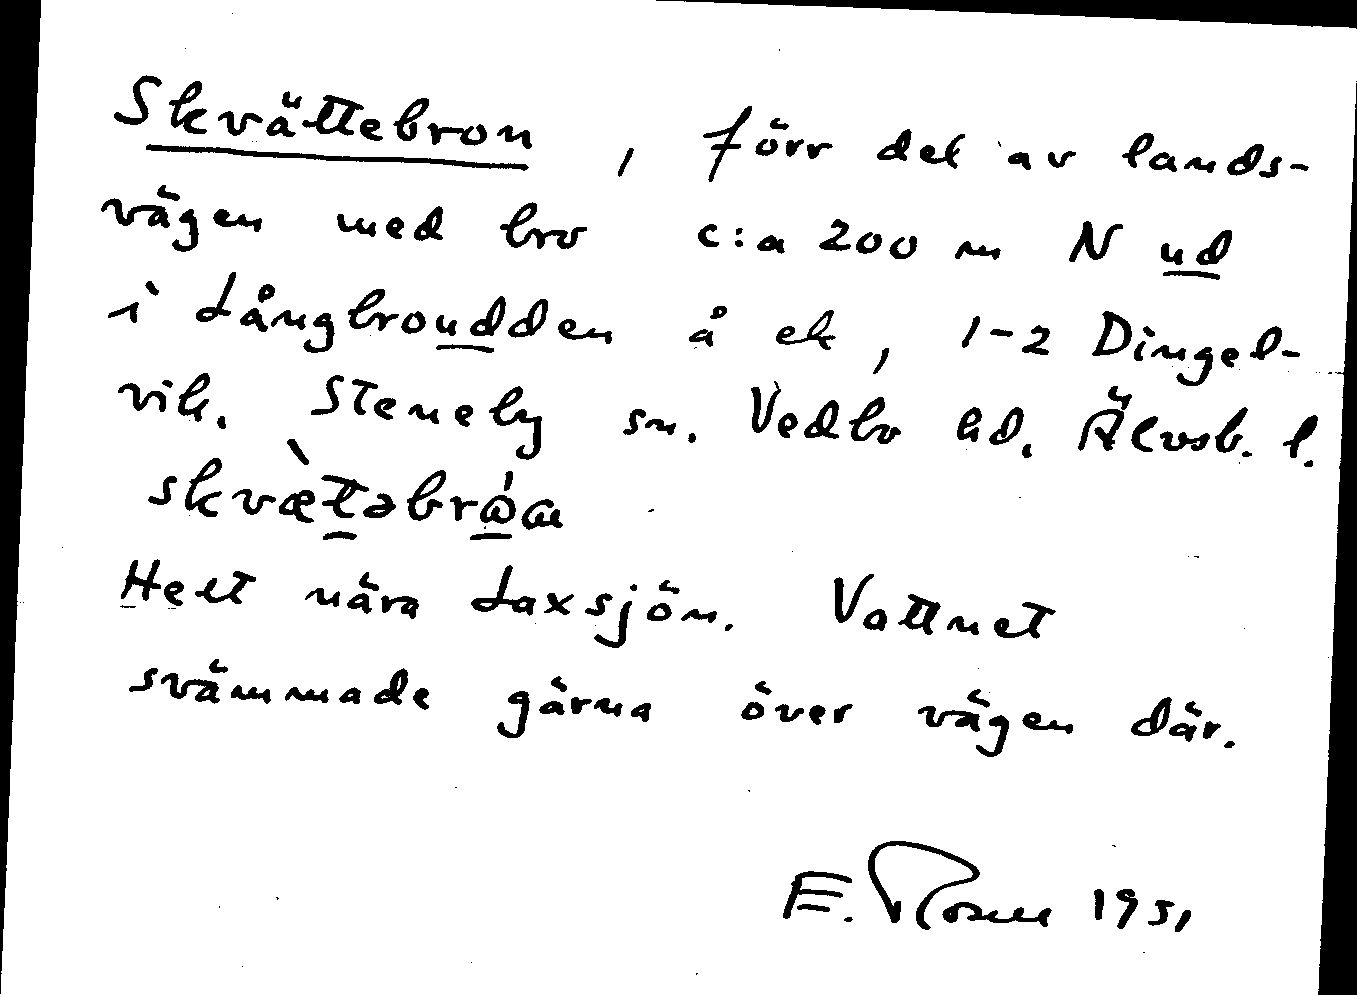 Skvättebron, förr del av lands-
vägen med bro c:a 200 m N ud
i Långbroudden å ek, 1-2 Dingel-
vik. Steneby sn. Vedbo hd. Älvsb. l.
Helt nära Laxsjön. Vattnet
svämmade gärna över vägen där.
E. Rosell 1951